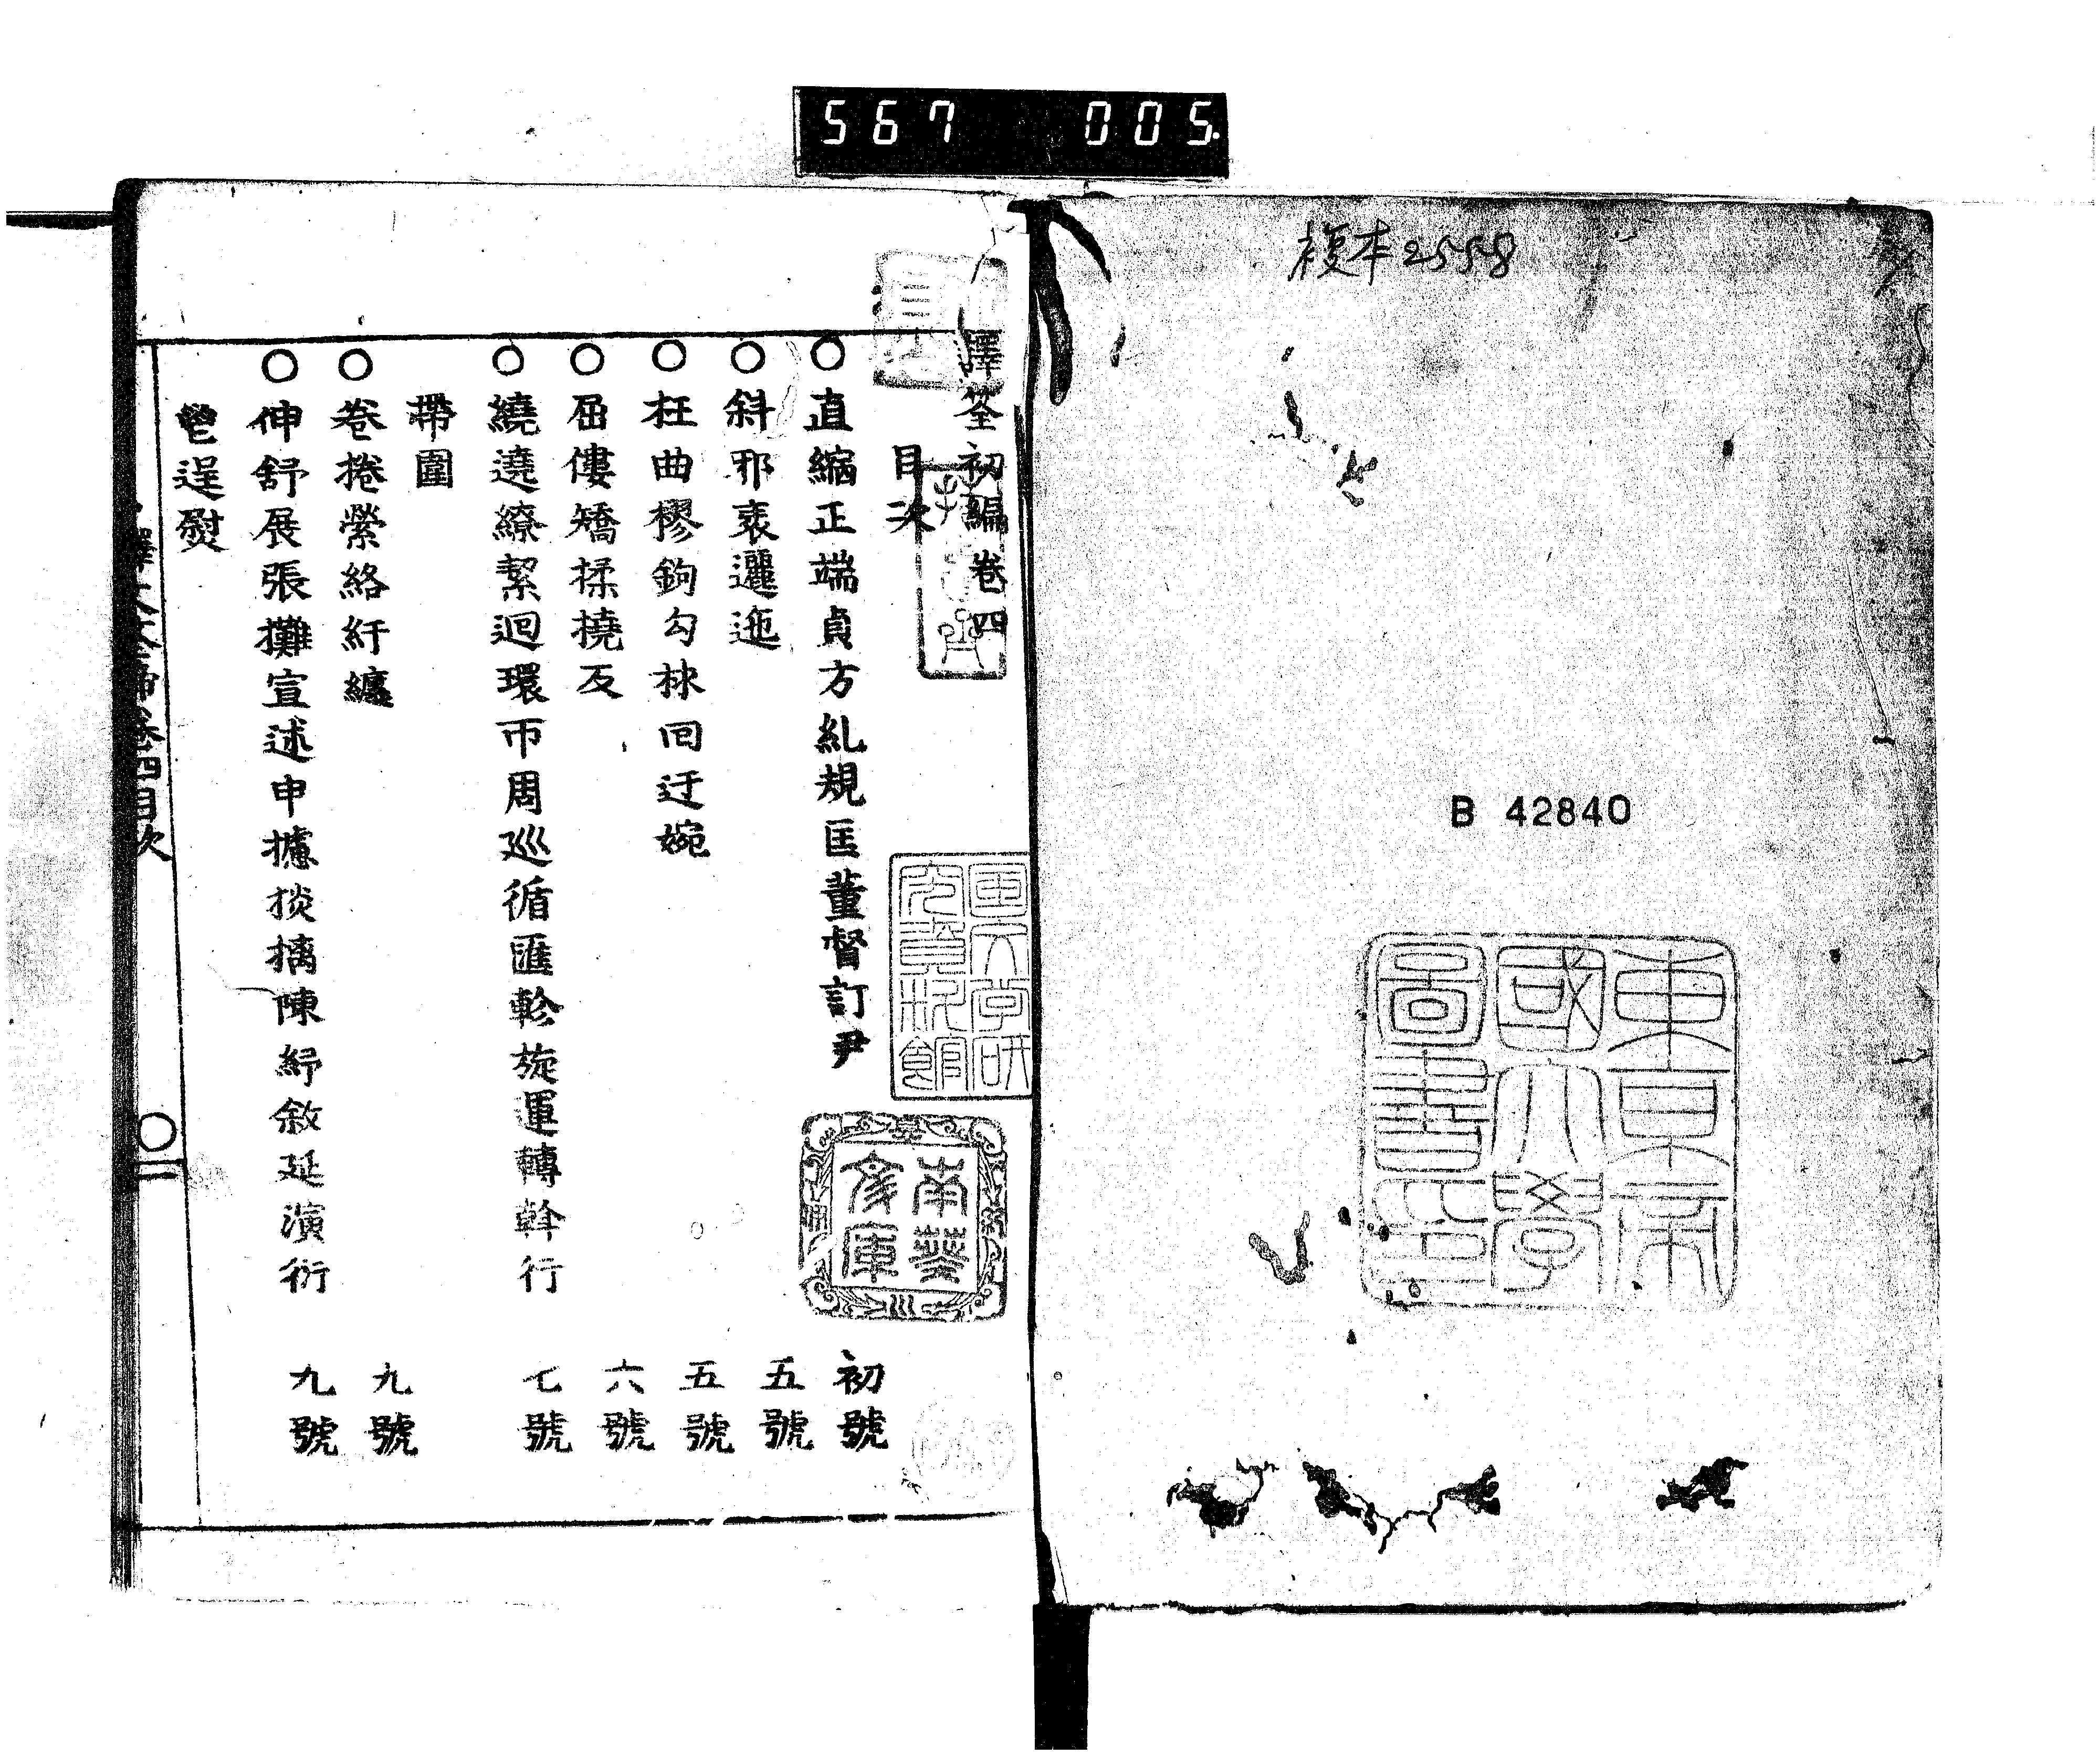 567 005.
複本2558
B 42840
東京帝
國大學
圖書印
譯筌初編卷四
目次
○直縮正端貞方糺規匡董督訂尹 初號
○斜邪衺邐迤 五號
○枉曲樛鉤勾捄回迂婉 五號
○屈僂矯揉撓反 六號
○繞遶繚絜迴環帀周巡循匯軫旋運轉斡行 七號
帶圍
○卷捲縈絡紆纏 九號
○伸舒展張攤宣述申攄掞摛陳紓敘延演衍 九號
鬯逞熨
南葵
文庫
卷四目次
○一